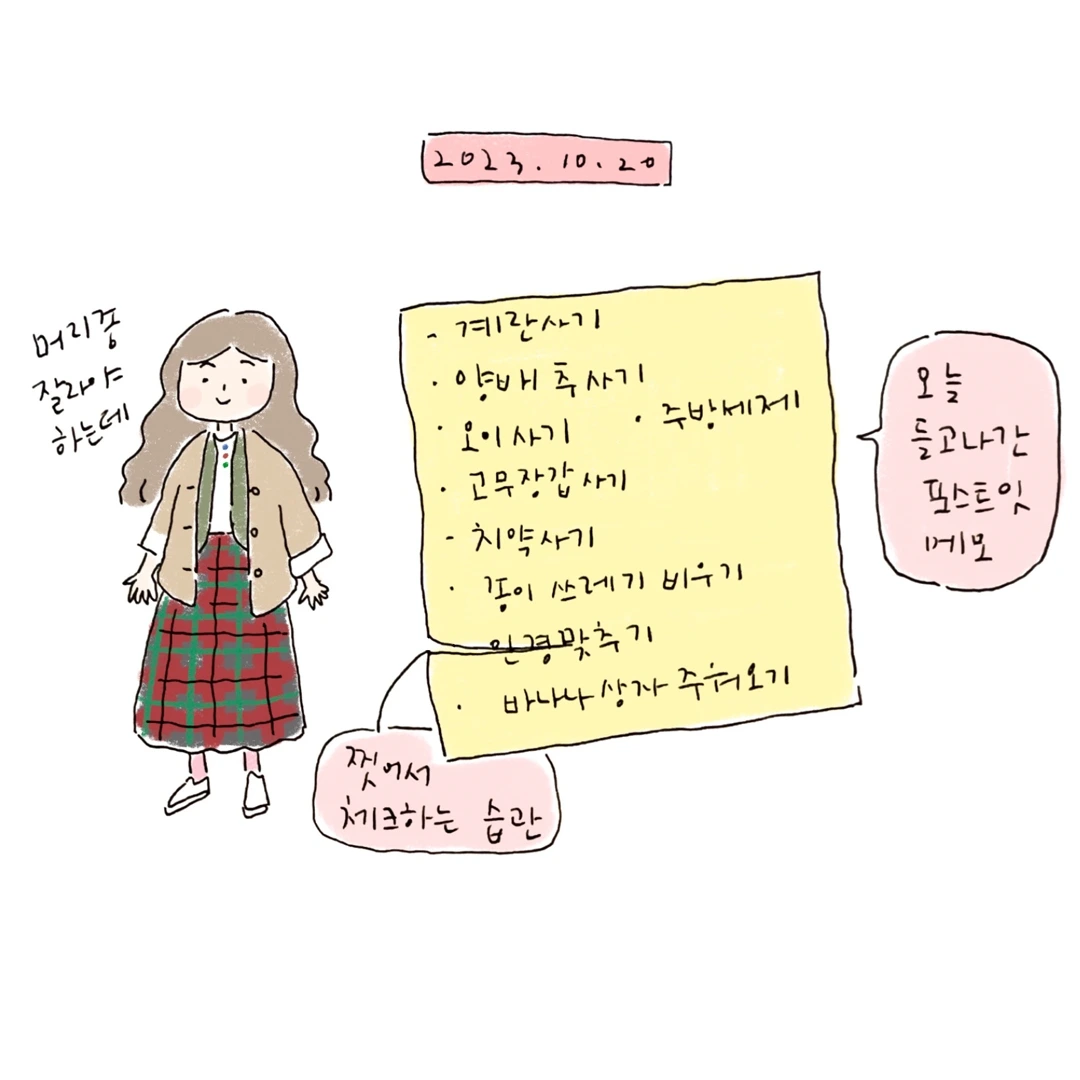 2023.10.20
머리좀
잘라야
하는데
- 계란사기
· 양배추사기
· 오이사기
· 주방세제
· 고무장갑사기
- 치약사기
· 종이 쓰레기 비우기
안경맞추기
· 바나나상자주워오기
오늘
들고나간
포스트잇
메모
찢어서
체크하는 습관